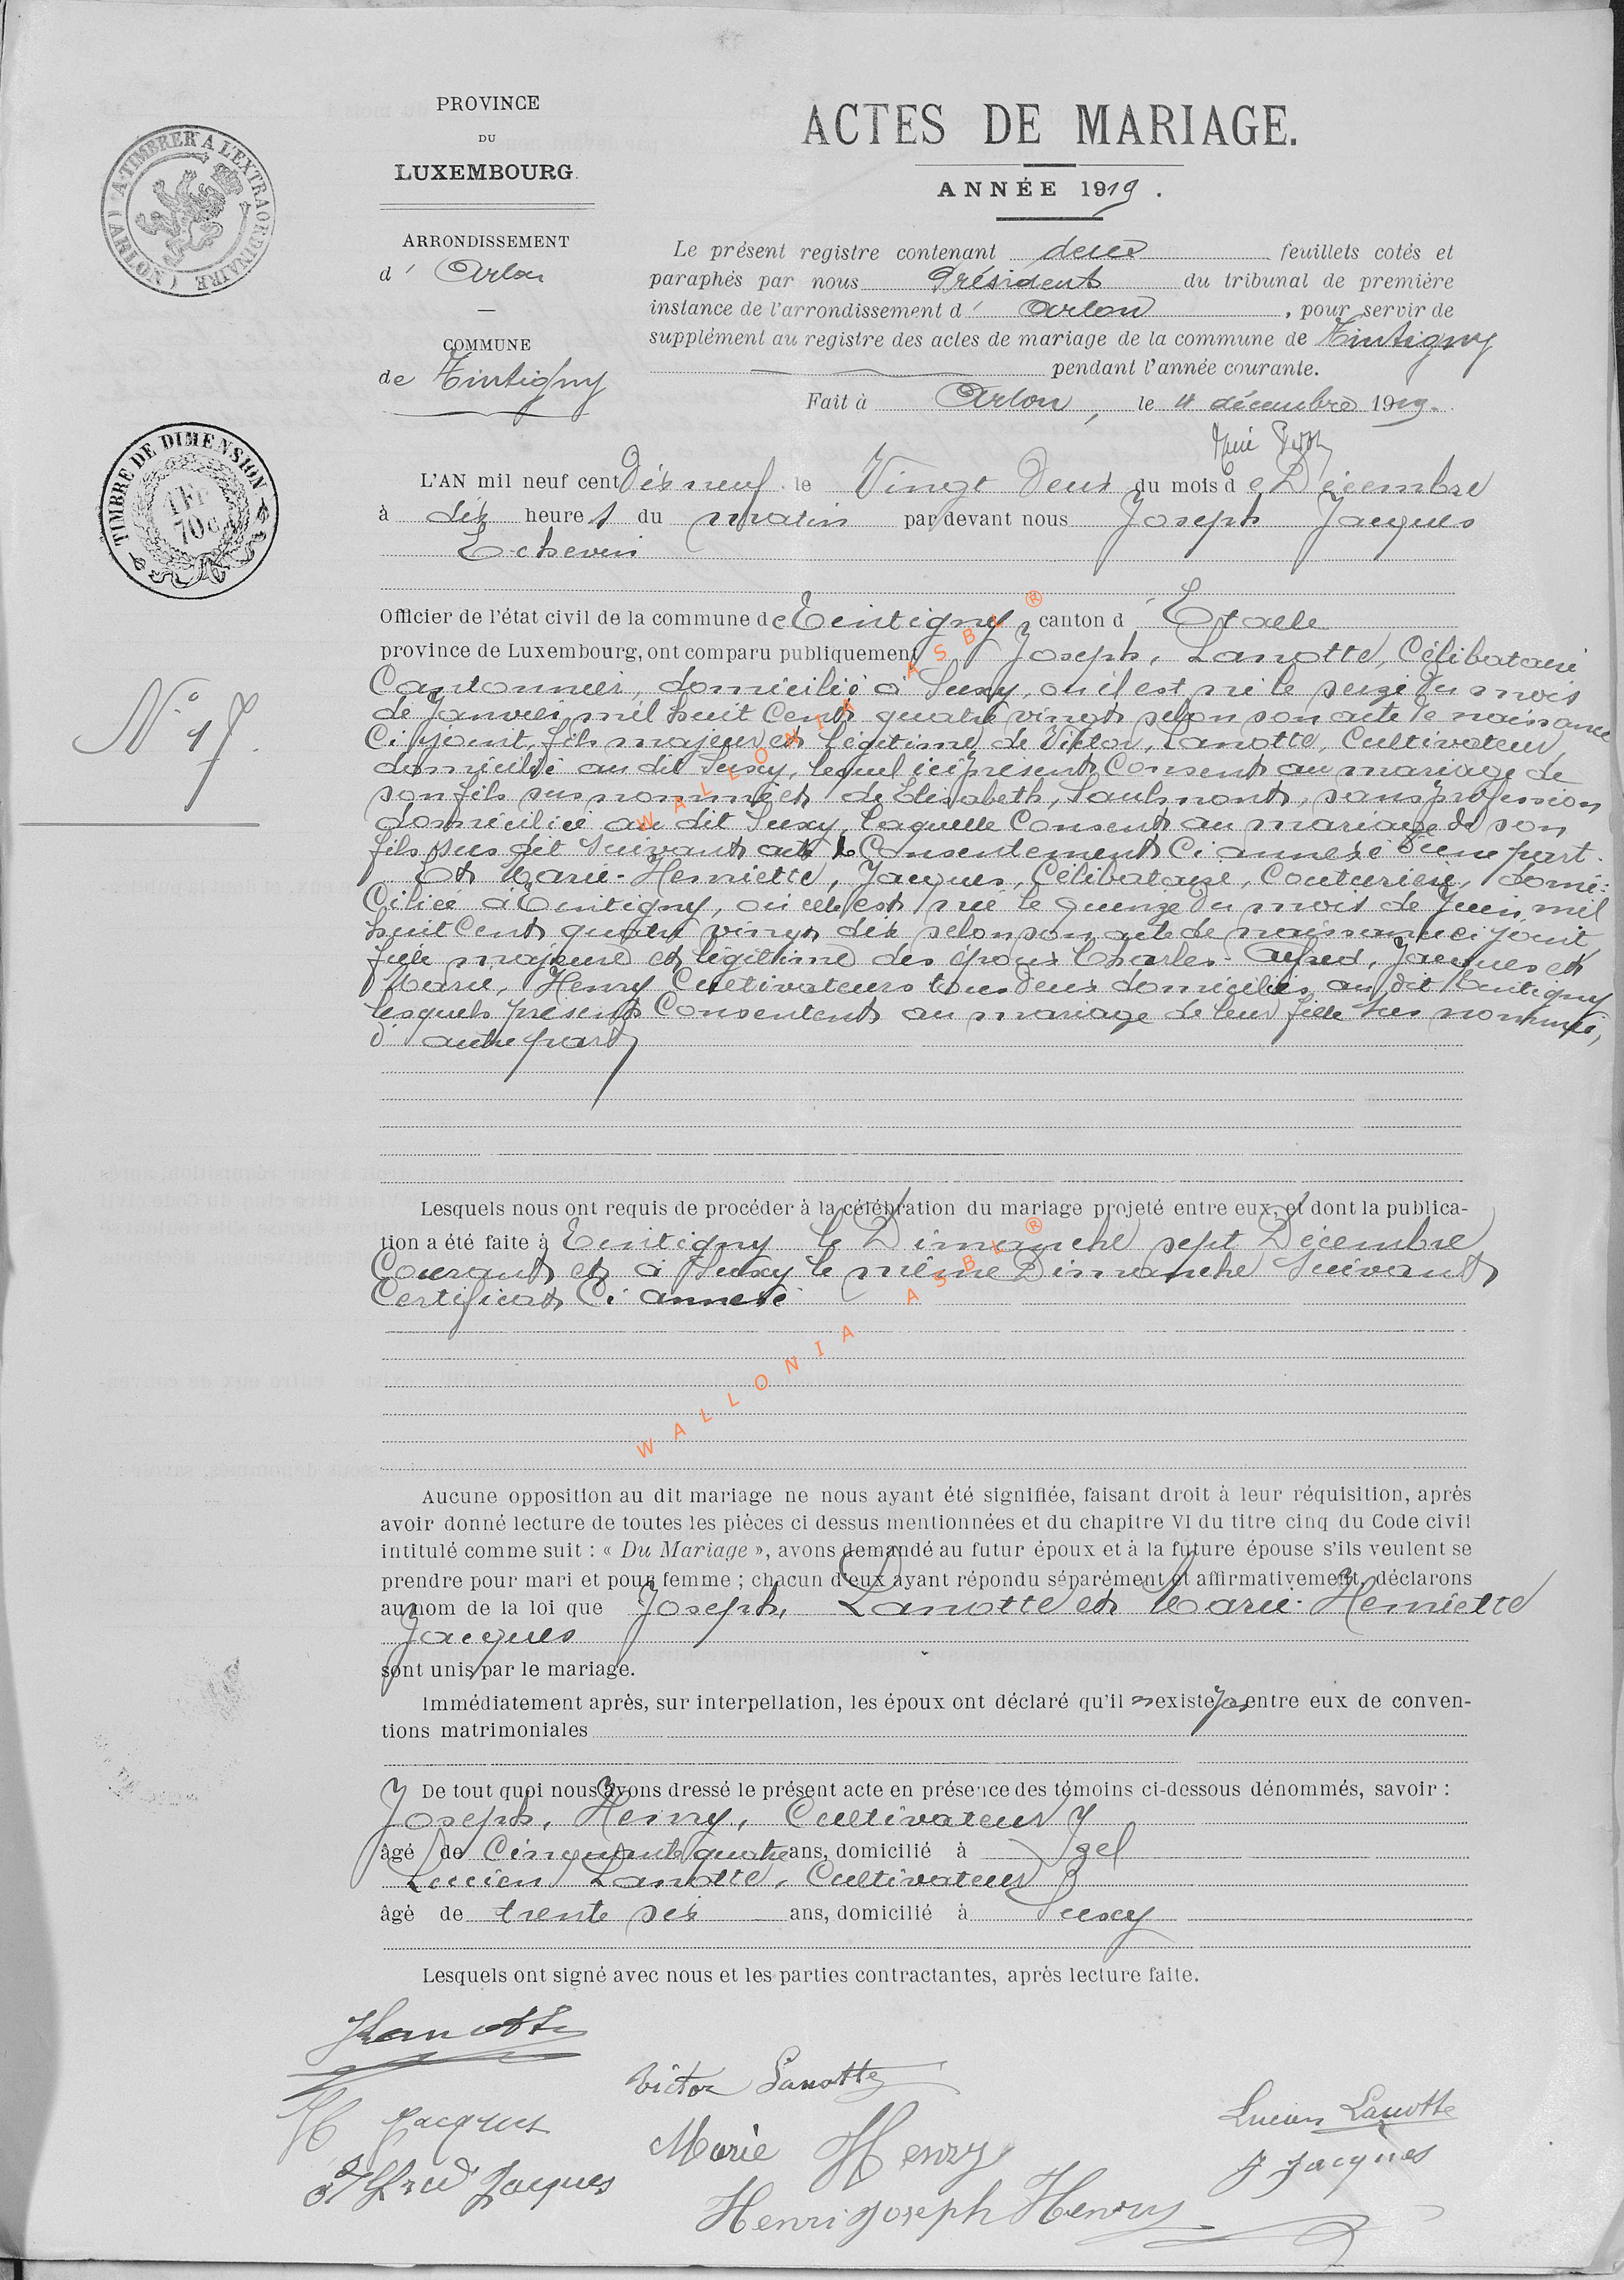 PROVINCE
DU
LUXEMBOURG.
ARRONDISSEMENT
d' Arlon
COMMUNE
de Tintigny
ACTES DE MARIAGE.
ANNÉE 1919.
Le présent registre contenant deux feuillets cotés et
paraphés par nous Président du tribunal de première
instance de l'arrondissement d' Arlon, pour servir de
supplément au registre des actes de mariage de la commune de Tintigny
pendant l'année courante.
Fait à Arlon, le 4 décembre 1919.
(NOTHAT) A TIMBRER A L'EXTRAORDINAIRE
TIMBRE DE DIMENSION
1 FR
70 C
L'AN mil neuf cent Dix neuf le Vingt Deux du mois de Décembre
à dix heures du matin par devant nous Joseph Jacques
Echevin
Officier de l'état civil de la commune de Tintigny, canton d'Etalle
province de Luxembourg, ont comparu publiquement Joseph, Lanotte, Célibataire
Cantonnier, domicilié à Suxy, où il est né le seize du mois
de Janvier mil huit Cent quatre vingt selon son acte de naissance
Ci joint, fils majeur et légitime de Victor, Lanotte, Cultivateur,
domicilié au dit Suxy, lequel ici présent Consent au mariage de
son fils sus nommé et de Elisabeth, Saulmont, sans profession
domiciliée au dit Suxy, laquelle Consent au mariage de son
fils sus dit suivant acte de Consentement Ci annexé d'une part.
N° 17.
Et Marie-Henriette, Jacques, Célibataire, Couturière, domi-
Ciliée à Tintigny, où elle est née le quinze du mois de Juin mil
huit Cent quatre vingt dix selon son acte de naissance ci joint,
fille majeure et légitime des époux Charles-Alfred, Jacques et
Marie, Henry Cultivateurs tous deux domiciliés au dit Tintigny
lesquels présents Consentent au mariage de leur fille sus nommée,
d'autre part
Lesquels nous ont requis de procéder à la célébration du mariage projeté entre eux, et dont la publica-
tion a été faite à Tintigny le Dimanche sept Décembre
Courant et à Suxy le même Dimanche Suivant
Certificat Ci annexé
Aucune opposition au dit mariage ne nous ayant été signifiée, faisant droit à leur réquisition, après
avoir donné lecture de toutes les pièces ci dessus mentionnées et du chapitre VI du titre cinq du Code civil
intitulé comme suit : « Du Mariage », avons demandé au futur époux et à la future épouse s'ils veulent se
prendre pour mari et pour femme ; chacun d'eux ayant répondu séparément et affirmativement, déclarons
au nom de la loi que Joseph, Lanotte et Marie-Henriette
Jacques
sont unis par le mariage.
Immédiatement après, sur interpellation, les époux ont déclaré qu'il n'existe pas entre eux de conven-
tions matrimoniales
De tout quoi nous avons dressé le présent acte en présence des témoins ci-dessous dénommés, savoir :
Joseph, Henry, Cultivateur
âgé de Cinquante quatre ans, domicilié à Izel
Lucien Lanotte, Cultivateur
âgé de trente six ans, domicilié à Suxy
Lesquels ont signé avec nous et les parties contractantes, après lecture faite.
J Lanotte
Victor Lanotte
Lucien Lanotte
H Jacques
Marie Henry
J Jacques
Alfred Jacques
Henri Joseph Henry
WALLONIA ASBL ®
WALLONIA ASBL ®